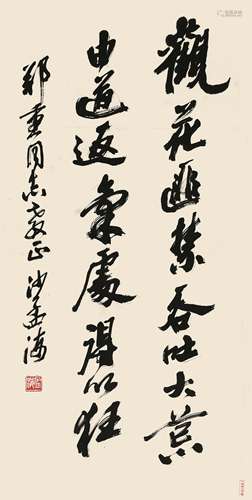 觀花匪禁吞吐大荒
由道返氣處得以狂
郑重同志教正 沙孟海